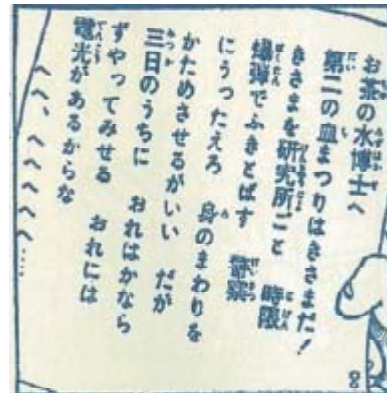 お茶の水博士へ
第二の血まつりはきさまだ!
きさまを研究所ごと 時限
爆弾でふきとばす 警察
にうったえろ 身のまわりを
かためさせるがいい だが
三日のうちに おれはかなら
ずやってみせる おれには
電光があるからな
へへ、へへへへ……